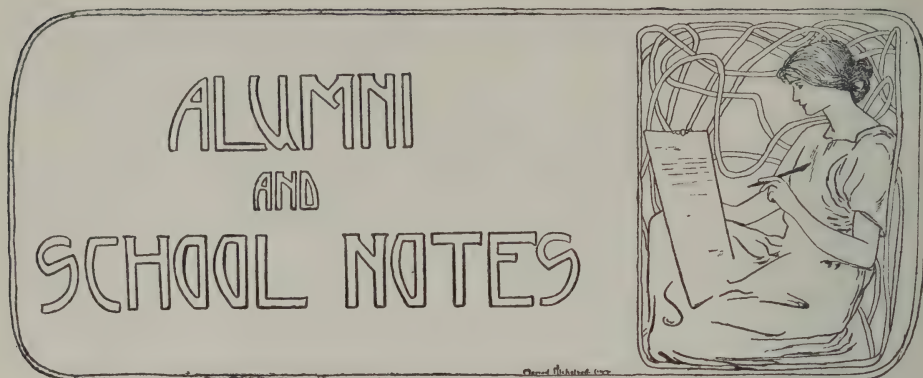 ALUMNI
AND
SCHOOL NOTES